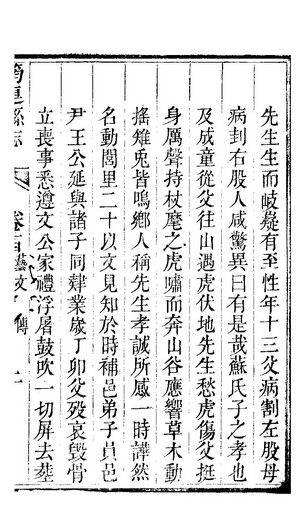 先生生而岐嶷有至性年十三父病割左股母
病刲右股人咸驚異曰有是哉蘇氏子之孝也
及成童從父往山遇虎伏地先生愁虎傷父挺
身厲聲持杖麾之虎嘯而奔山谷應響草木動
搖雉兎皆鳴鄉人稱先生孝誠所感一時譁然
名動閭里二十以文見知於時補邑弟子員邑
尹王公延與諸子同肄業歲丁卯父歿哀毀骨
立喪事悉遵文公家禮浮屠鼓吹一切屏去塟
筠連縣志
藝文
傳